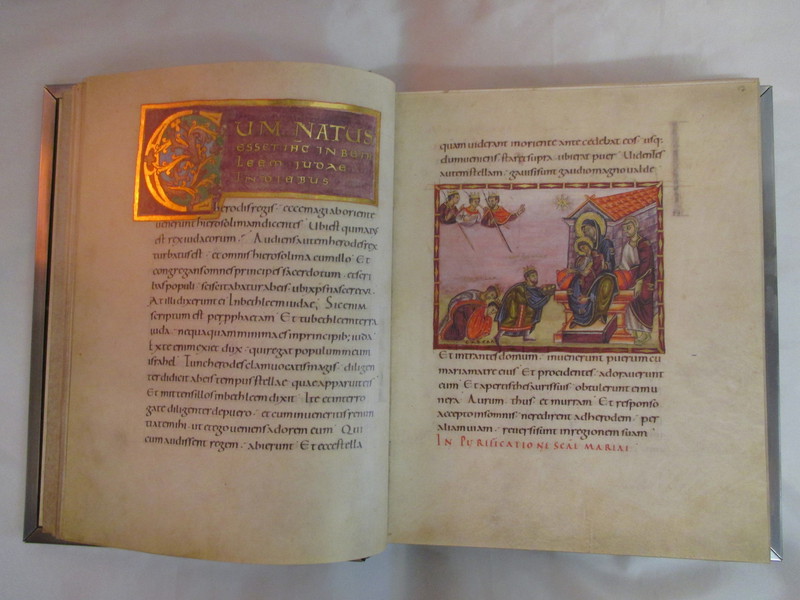 CUM NATUS
ESSET IHC IN BETH
LEEM JUDAE
IN DIEBUS
herodis regis ecce magi aboriente
uenerunt hierosolimam dicentes Ubi est qui natus
est rex iudaeorum Audiens autem herodes rex
turbatus est et omnis hierosolima cum illo Et
congregans omnes principes sacerdotum et scri
bas populi sciscitabatur abeis ubi xps nasceretur
At illi dixerunt ei Inbethleem iudae Sic enim
scriptum est per prophaetam Et tu bethleem terra
iuda nequaquam minima es inprincipib; iuda
Ex te enim exiet dux qui regat populum meum
israhel Tunc herodes clam uocatis magis diligen
ter didicit abeis tempus stellae quae apparuit eis
Et mittens illos inbethleem dixit Ite et interro
gate diligenter depuero et cum inueneritis renun
tiate mihi ut et ego ueniens adorem eum Qui
cum audissent regem abierunt Et ecce stella
quam uiderant inoriente antecedebat eos usq;
dum ueniens staret supra ubi erat puer Uidentes
autem stellam gauisi sunt gaudio magno ualde
Et intrantes domum inuenerunt puerum cu
maria matre eius Et procidentes adorauerunt
eum Et apertis thesauris suis obtulerunt ei mu
nera Aurum thus et murram Et responso
accepto insomnis neredirent adherodem per
aliam uiam reuersi sunt inregionem suam
IN PURIFICATIONE SCAE MARIAE